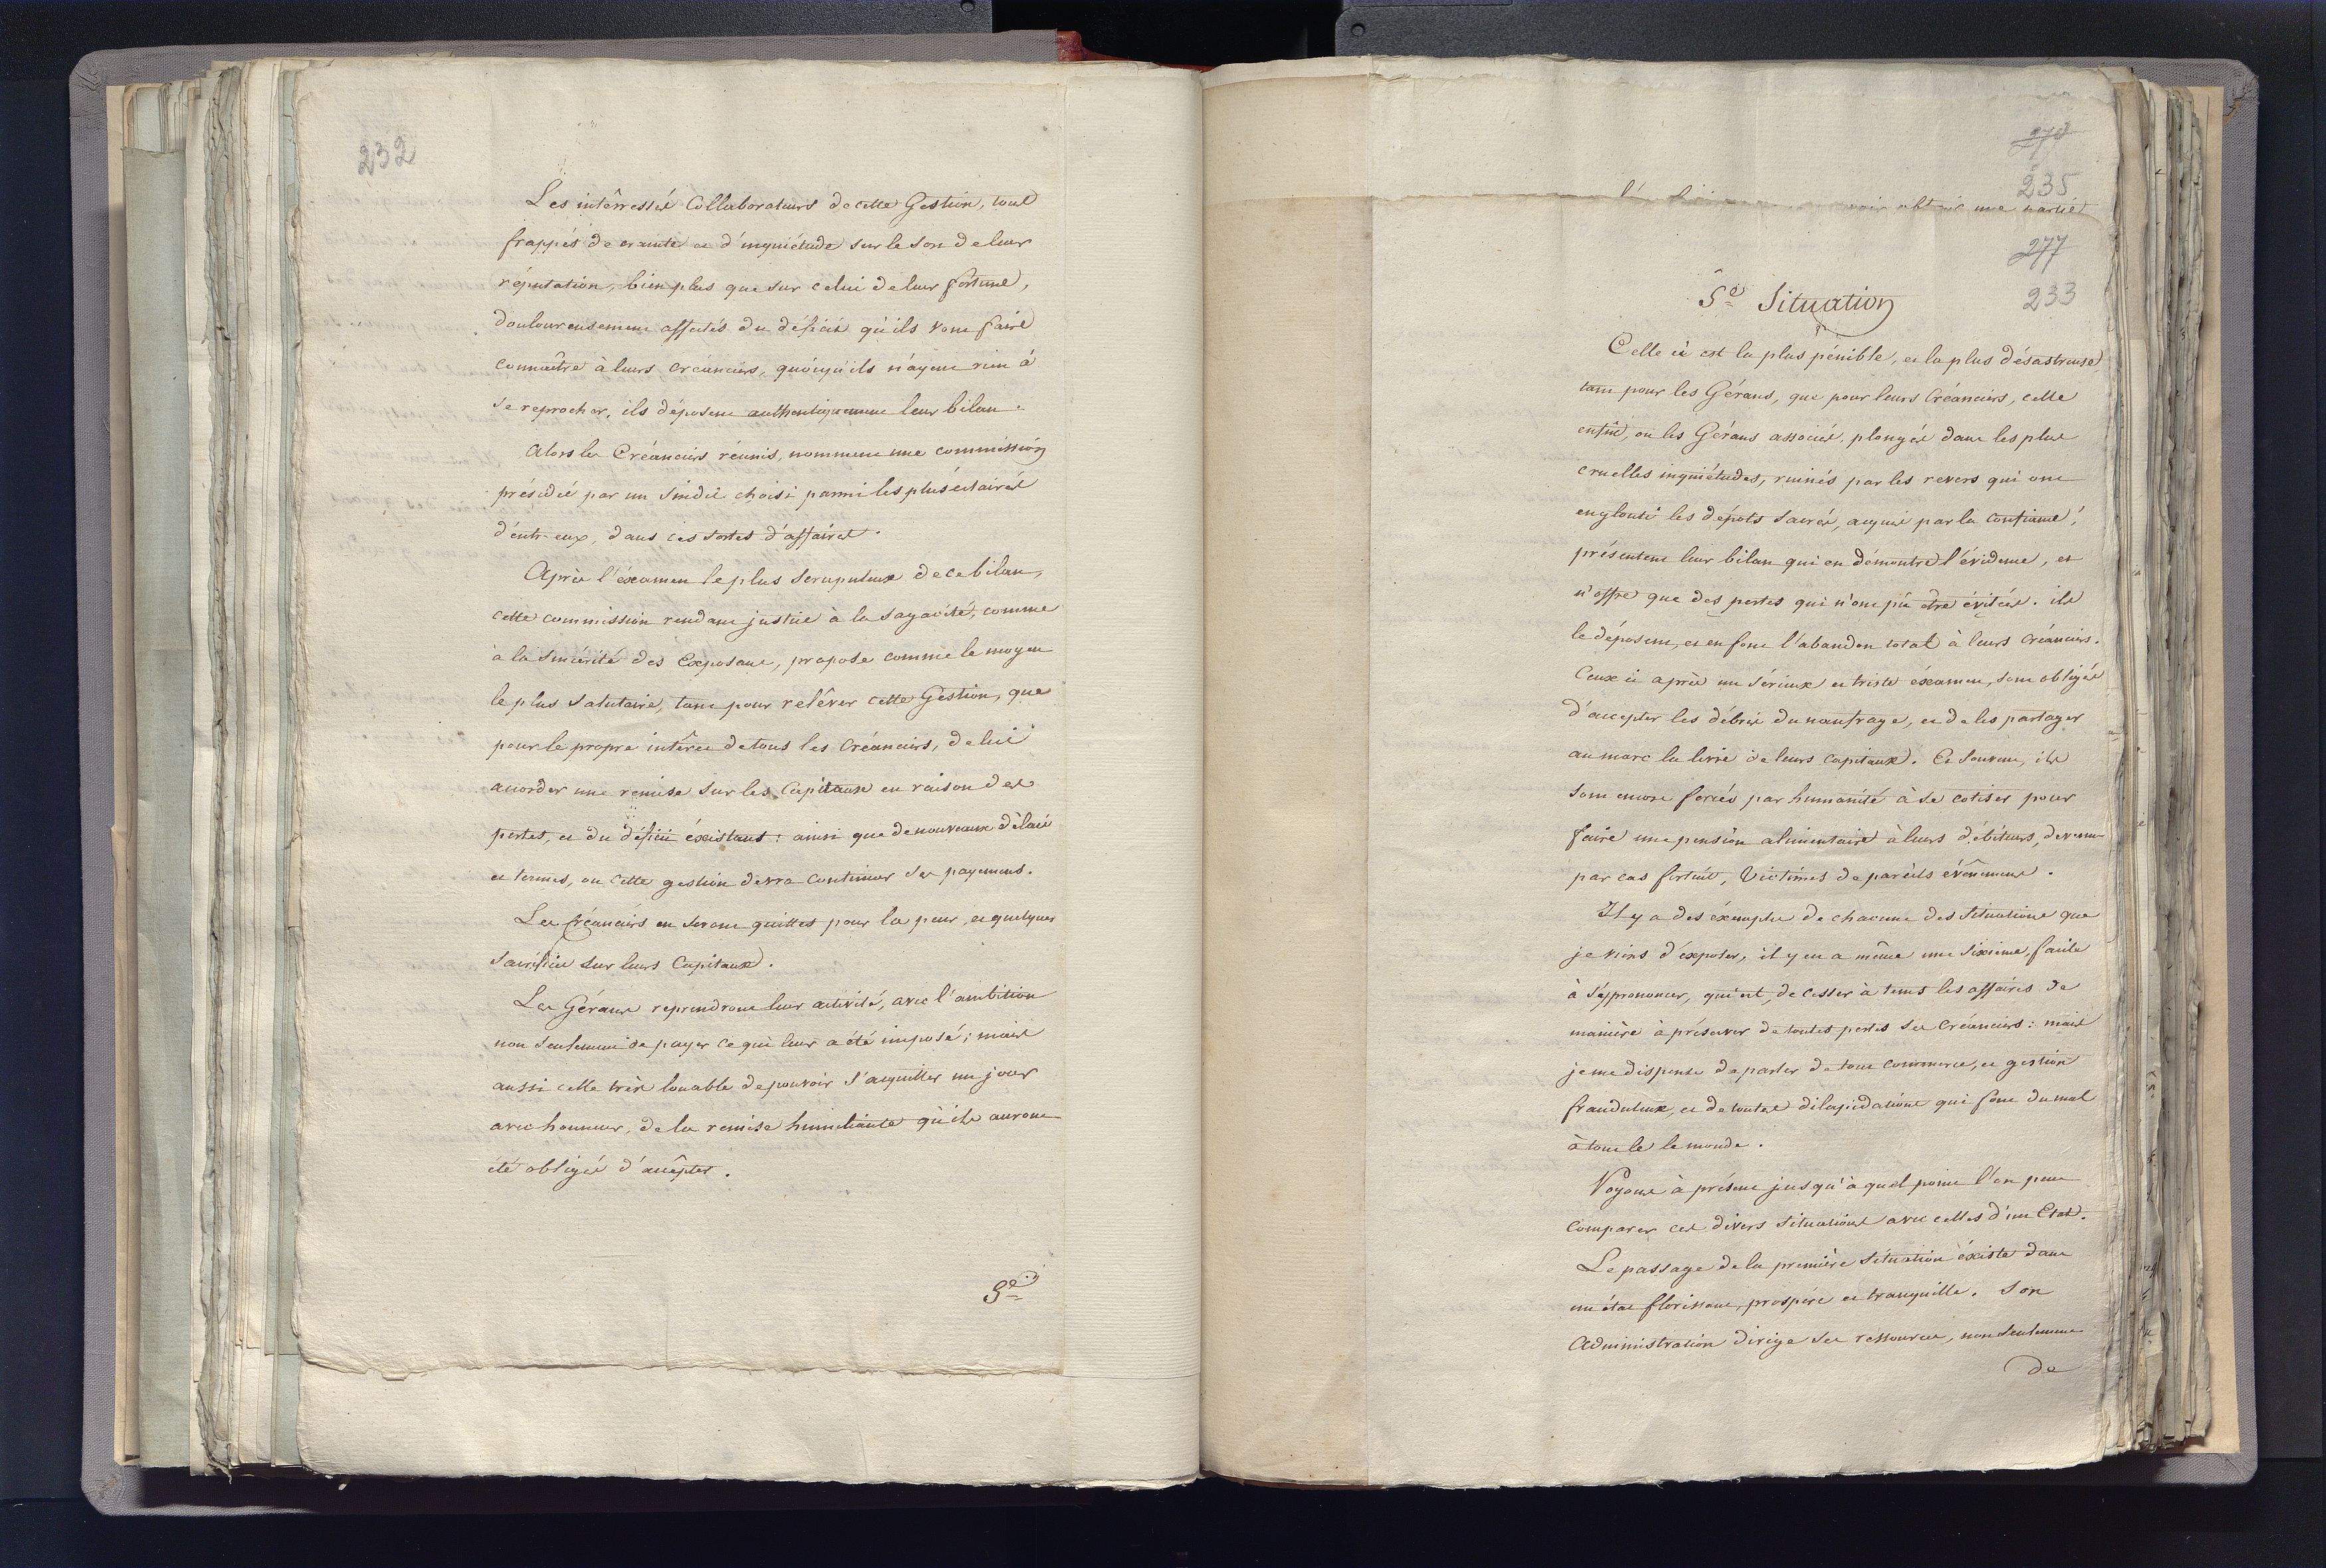 232
Les intêressés Collaborateurs de cette Gestion, tous
frappés de crainte et d'inquiétude sur le sort de leur
réputation, bien plus que sur celui de leur fortune,
douloureusement affectés du déficit qu'ils vont faire
connaître à leurs créanciers, quoiqu'ils n'ayent rien à
se reprocher, ils déposent authentiquement leur bilan.
Alors les Créanciers réunis, nomment une commission
présidée par un Sindic choisi parmi les plus éclairés
d'entr-eux, dans ces sortes d'affaires.
Après l'éxamen le plus scrupuleux de ce bilan,
cette commission rendant justice à la sagacité, comme
à la sincérité des Exposans, propose comme le moyen
le plus salutaire, tant pour relêver cette Gestion, que
pour le propre intêret de tous les Créanciers, de lui
accorder une remise sur les Capitaux en raison des
pertes, et du déficit éxistans : ainsi que de nouveaux délais
et termes, ou cette gestion devra continuer ses payemens.
Les Créanciers en seront quittes pour la peur, et quelques
sacrifices sur leurs Capitaux.
Les Gérans reprendront leur activité, avec l'ambition
non seulement de payer ce qui leur a été imposé ; mais
aussi celle très louable de pouvoir s'acquitter un jour
avec honneur, de la remise humiliante qu'ils auront
été obligés d'accêpter.
5e
270
235
obtenir une partie
277
233
5e Situation
Celle ci est la plus pénible, et la plus désastreuse,
tant pour les Gérans, que pour leurs Créanciers, celle
enfin, ou les Gérans associés, plongés dans les plus
cruelles inquiétudes, ruinés par les revers qui ont
englouti les dépots sacrés, acquis par la confiance,
présentent leur bilan qui en démontre l'évidence, et
n'offre que des pertes qui n'ont pû être évitées. ils
le déposent, et en font l'abandon total à leurs Créanciers.
Ceux ci après un sérieux et triste éxamen, sont obligés
d'accepter les débris du naufrage, et de les partager
au marc la livre de leurs capitaux. Et souvent, ils
sont encore forcés par humanité à se cotiser pour
faire une pension alimentaire à leurs débiteurs, devenus
par cas fortuit, Victimes de pareils évênemens.
Il y a des éxemples de chacune des Situations que
je viens d'éxposer, il y en a même une Sixieme, facile
à s'y prononcer, qui est, de cesser à tems les affaires de
manière à préserver de toutes pertes ses Créanciers : mais
je me dispense de parler de tout commerce, et gestion
frauduleux, et de toutes dilapidations qui font du mal
à tout le monde.
Voyons à présent jusqu'à quel point l'on peut
comparer ces divers situations avec celles d'un Etat.
Le passage de la première situation éxiste dans
un état florissant, prospère et tranquille. Son
Administration dirige ses ressources, non seulement
de